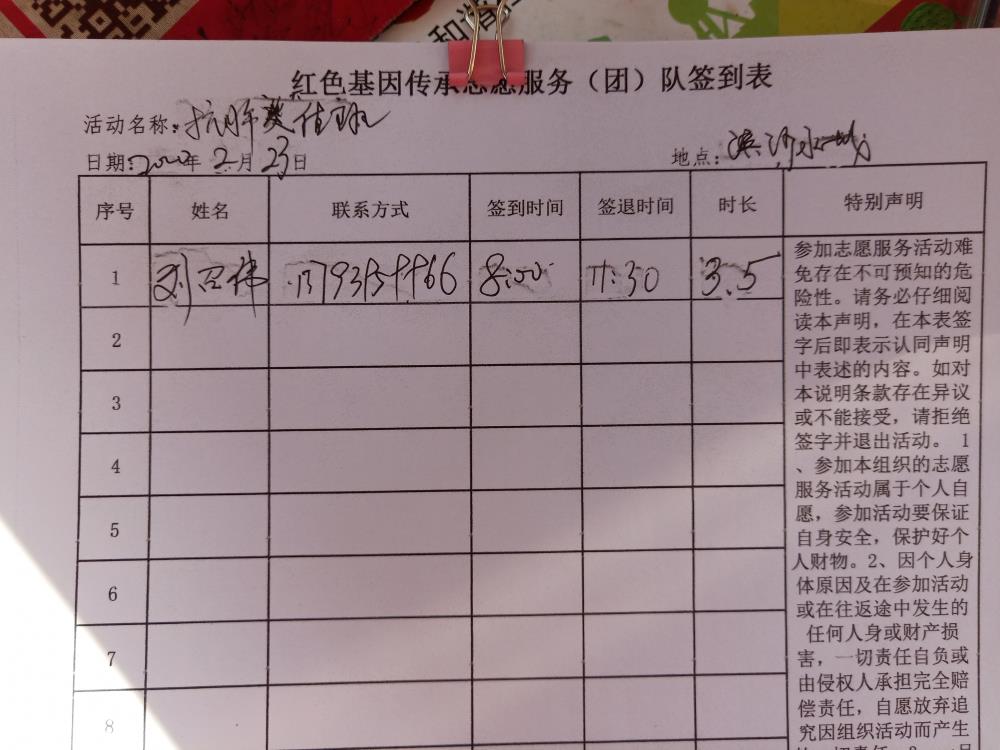 和谐
红色基因传承志愿服务（团）队签到表
活动名称：抗肺炎
日期：2020年2月23日 地点：
序号 姓名 联系方式 签到时间 签退时间 时长 特别声明
1 刘召伟 8:00 11:30 3.5
2
3
4
5
6
7
8
参加志愿服务活动难
免存在不可预知的危
险性。请务必仔细阅
读本声明，在本表签
字后即表示认同声明
中表述的内容。如对
本说明条款存在异议
或不能接受，请拒绝
签字并退出活动。 1
、参加本组织的志愿
服务活动属于个人自
愿，参加活动要保证
自身安全，保护好个
人财物。2、因个人身
体原因及在参加活动
或在往返途中发生的
任何人身或财产损
害，一切责任自负或
由侵权人承担完全赔
偿责任，自愿放弃追
究因组织活动而产生